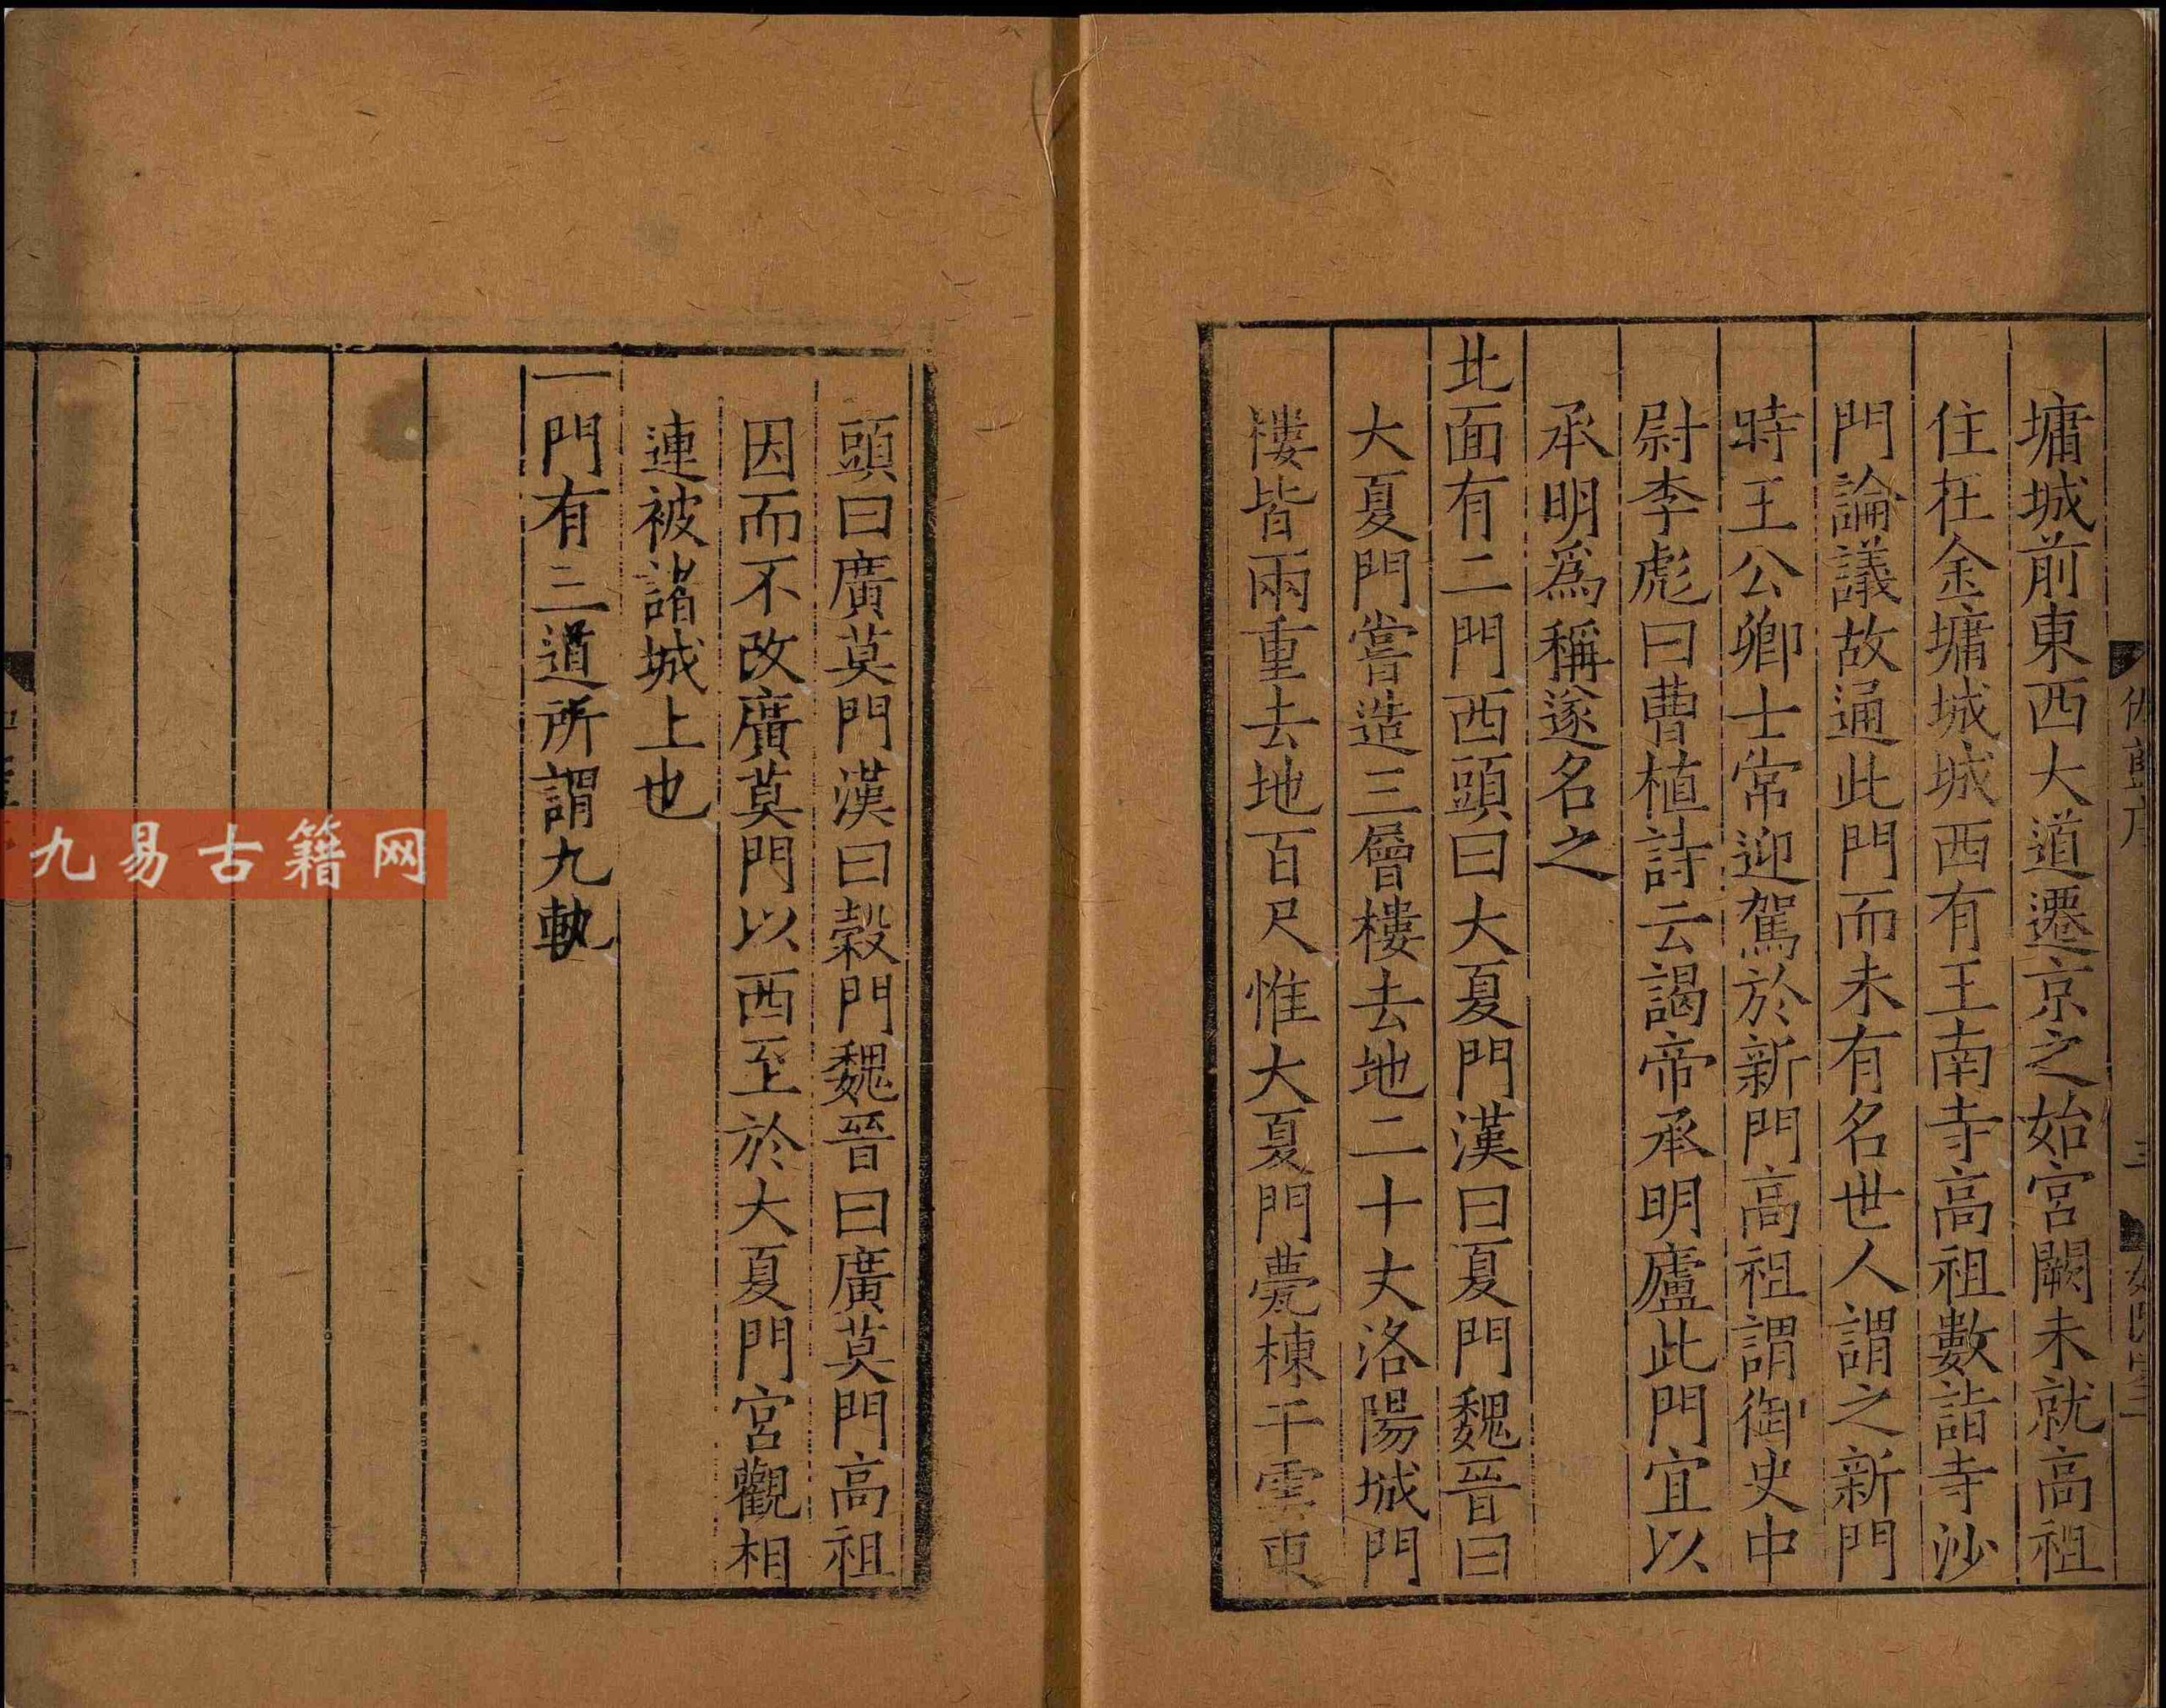 墉城前東西大道遷京之始宮闕未就高祖
住在金墉城城西有王南寺高祖數詣寺沙
門論議故通此門而未有名世人謂之新門
時王公卿士常迎駕於新門高祖謂御史中
尉李彪曰曹植詩云謁帝承明廬此門宜以
承明爲稱遂名之
北面有二門西頭曰大夏門漢曰夏門魏晉曰
大夏門嘗造三層樓去地二十丈洛陽城門
樓皆兩重去地百尺惟大夏門甍棟干雲東
頭曰廣莫門漢曰穀門魏晉曰廣莫門高祖
因而不改廣莫門以西至於大夏門宮觀相
連被諸城上也
一門有三道所謂九軌
九易古籍网